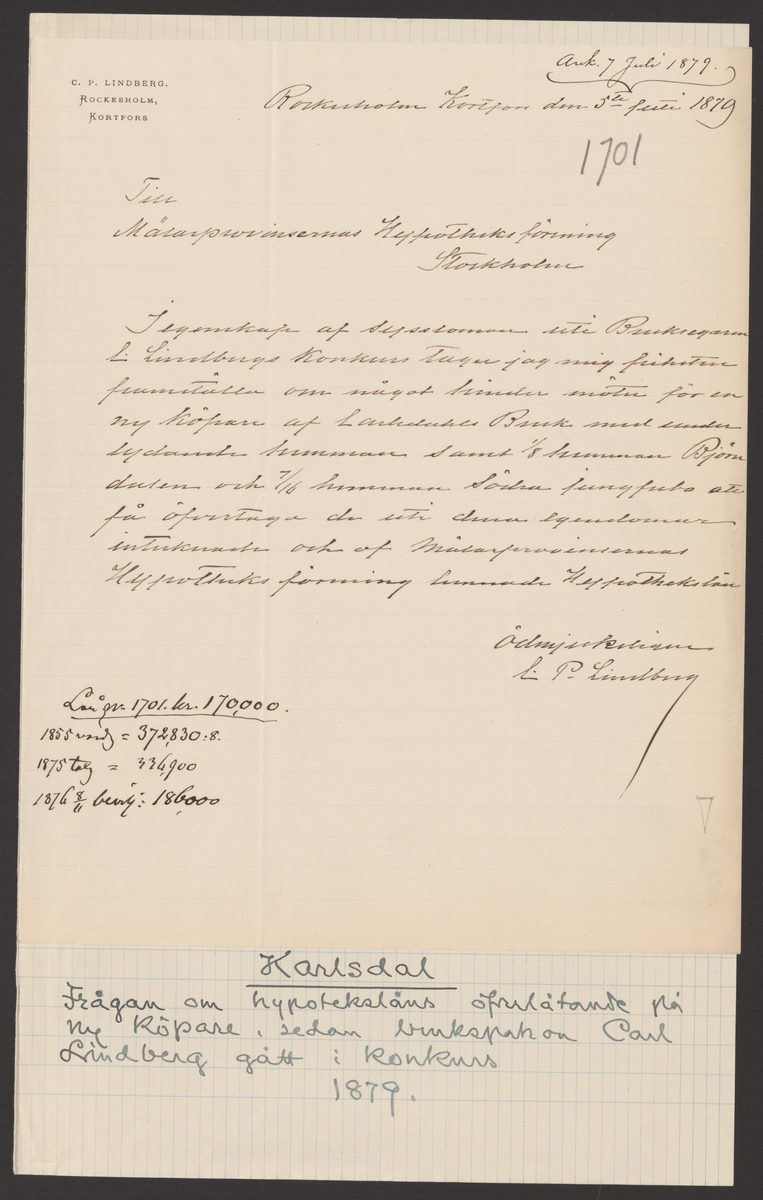 Ank. 7 Juli 1879.
C. P. LINDBERG.
ROCKESHOLM,
KORTFORS
Rockesholm Kortfors den 5te Juli 1879
1701
Till
Mälarprovinsernas Hypotheksförening
Stockholm
I egenskap af syssloman uti Bruksegaren
C. Lindbergs Konkurs tager jag mig friheten
framställa om något hinder möter för en
ny köpare af Carlsdahls Bruk med under
lydande hemman samt 1/8 hemman Björn
dalen och 7/16 hemman Södra Ljungfubo att
få öfvertaga de uti dessa egendomar
intecknade och af Mälarprovinsernas
Hypotheks förening lemnade Hypothekslån
Ödmjukeligen
C. P. Lindberg
Lån No 1701. kr. 170,000.
1855 värdg = 372,830:8.
1875 = 336,900
1876 8/11 bevilj: 186,000
Karlsdal
Frågan om hypotekslåns öfverlåtande på
ny köpare, sedan brukspatron Carl
Lindberg gått i konkurs
1879.